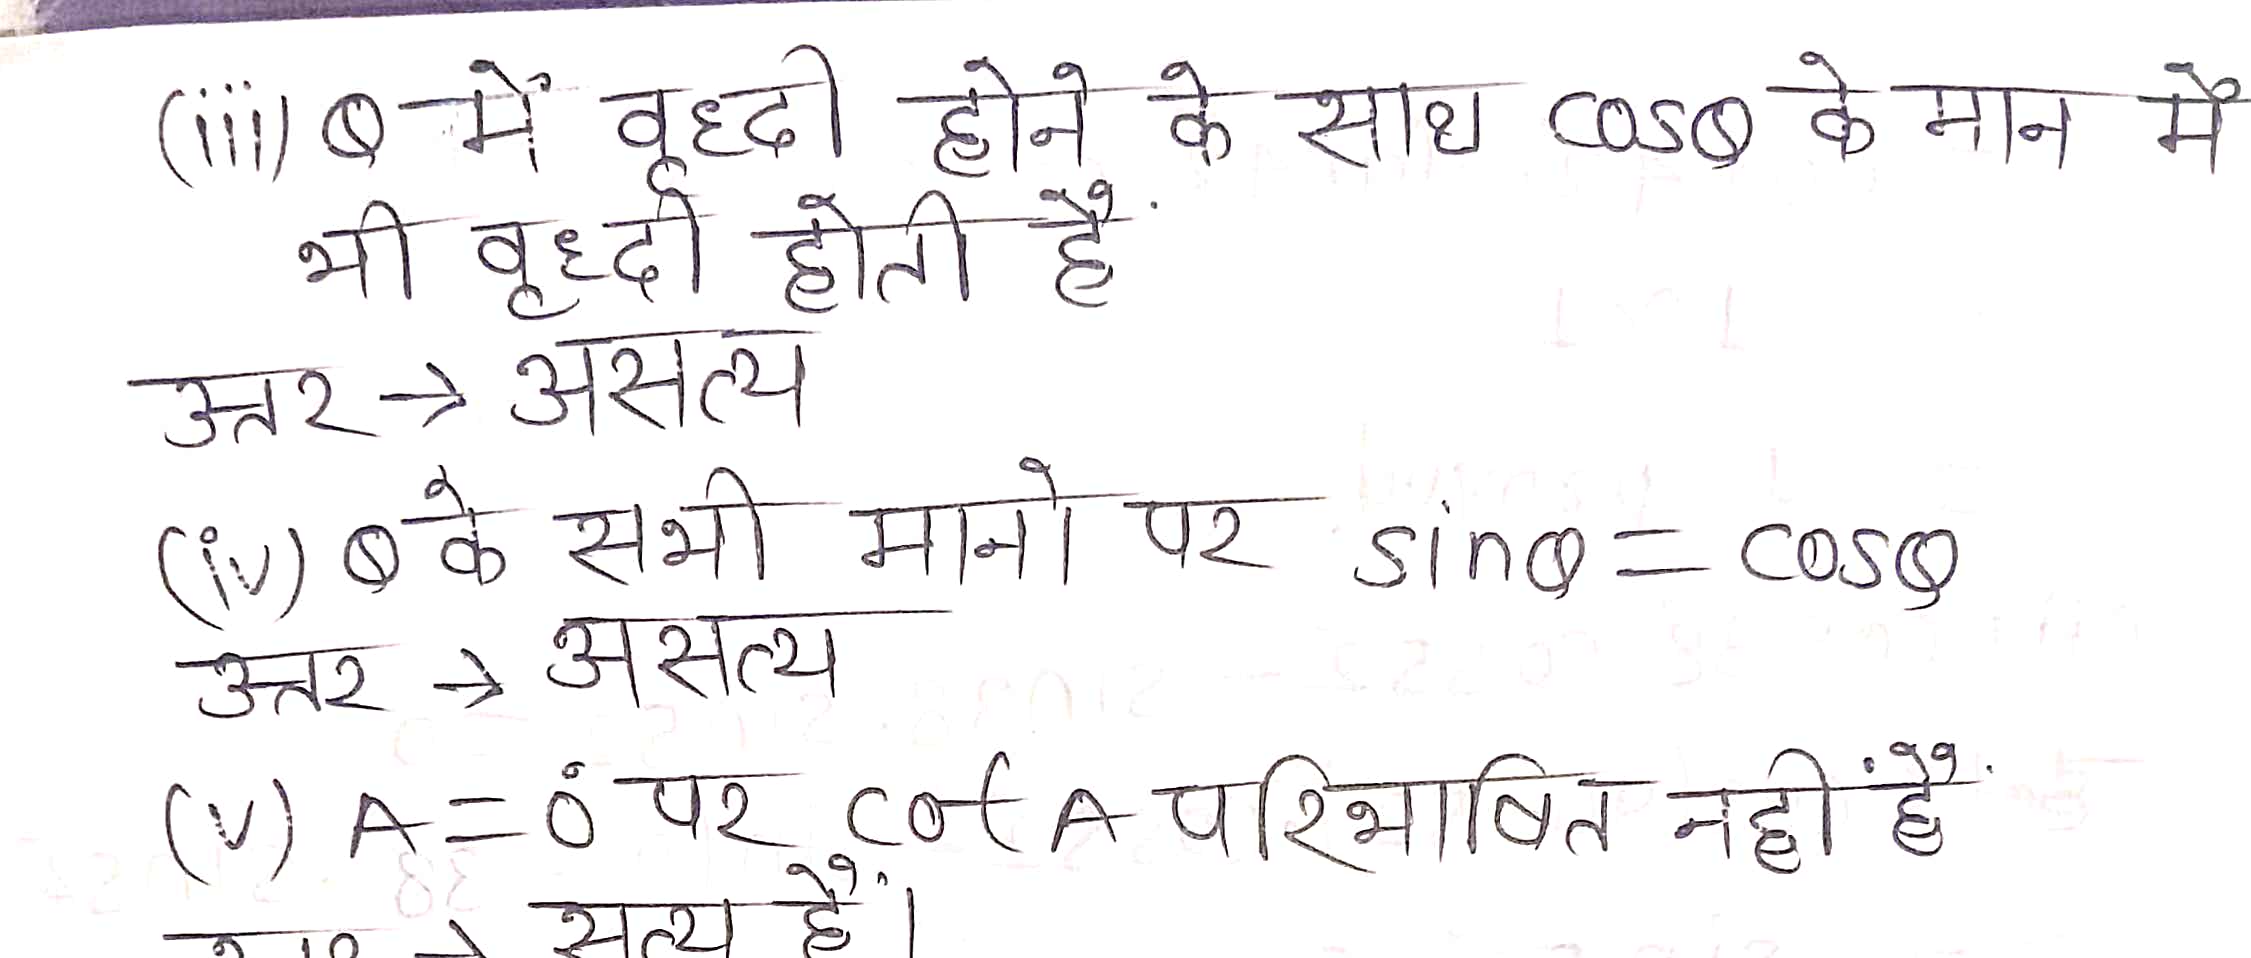 (iii) θ में वृध्दी होने के साथ cosθ के मान में
भी वृध्दी होती हैं
उत्तर → असत्य
(iv) θ के सभी मानो पर sinθ = cosθ
उत्तर → असत्य
(v) A = 0° पर cot A परिभाषित नहीं हैं
उत्तर → सत्य हैं।